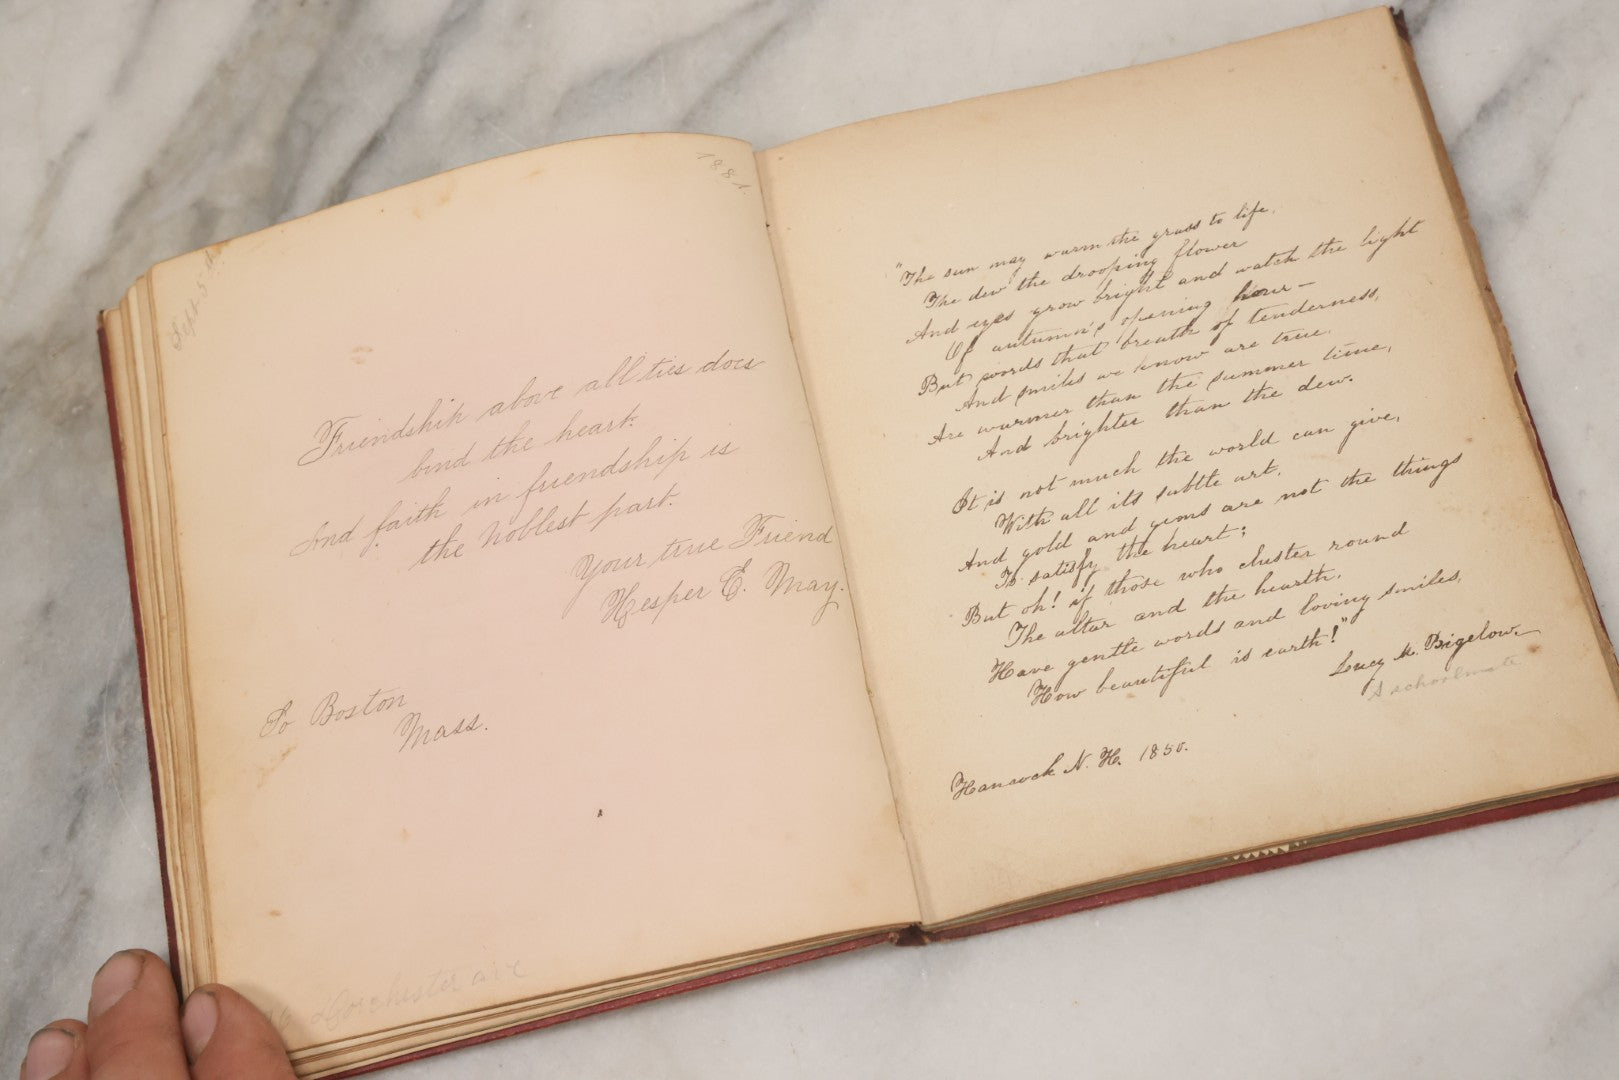 Sept 5th
1881.
Friendship above all ties does
bind the heart:
And faith in friendship is
the Noblest part.
Your true Friend
Hesper E. May.
So Boston
Mass.
Dorchester ave
"The sun may warm the grass to life,
The dew the drooping flower
And eyes grow bright and watch the light
Of autumn's opening hour—
But words that breath of tenderness,
And smiles we know are true,
Are warmer than the summer time,
And brighter than the dew.
It is not much the world can give,
With all its subtle art,
And gold and gems are not the things
To satisfy the heart;
But oh! if those who cluster round
The altar and the hearth,
Have gentle words and loving smiles,
How beautiful is earth!"
Lucy M. Bigelow.
A schoolmate
Hancock N. H. 1850.